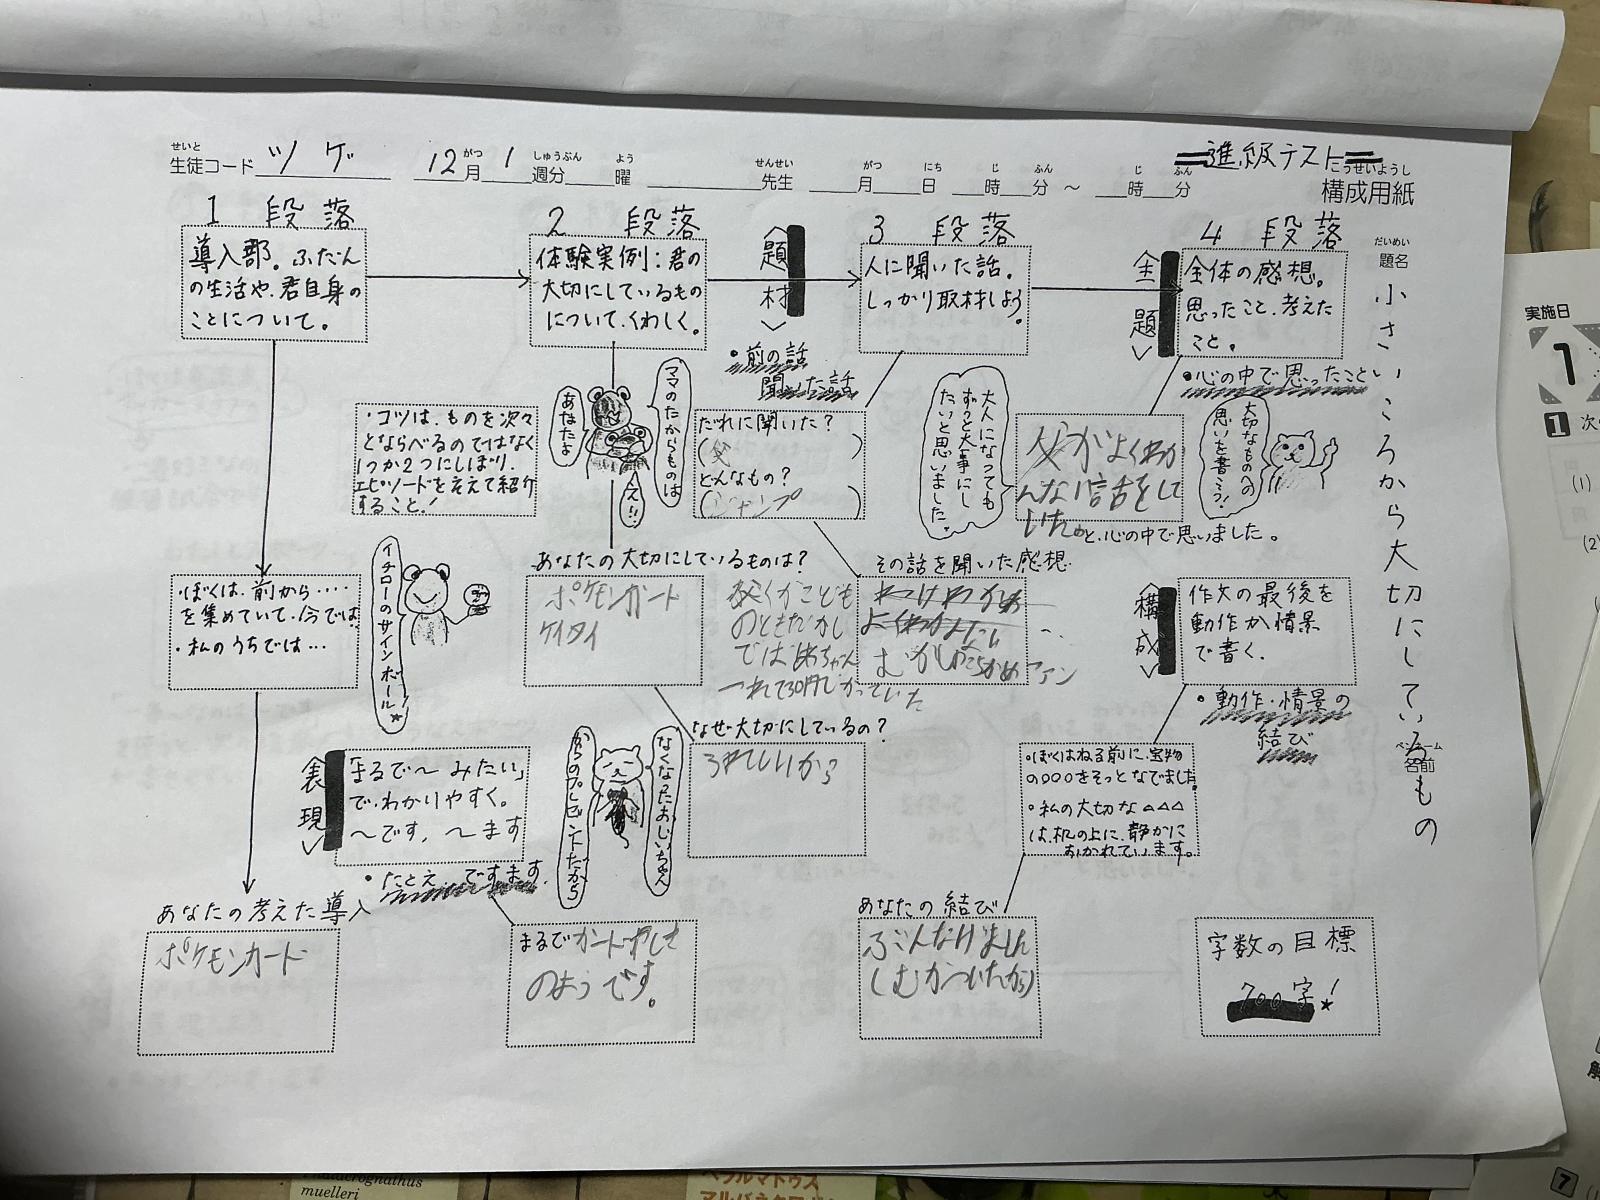 せいと
生徒コード ツゲ 12月 1 週分 曜 先生 月 日 時 分 ～ 時 分
がつ しゅうぶん よう せんせい がつ にち じ ふん じ ふん
進級テスト
こうせいようし
構成用紙
だいめい
題名
小さいころから大切にしているもの
ペンネーム
名前
1 段落
導入部。ふだん
の生活や、君自身の
ことについて。
2 段落
体験実例：君の
大切にしているもの
について、くわしく。
〈題材〉
・前の話
聞いた話
3 段落
人に聞いた話。
しっかり取材しよう。
〈主題〉
4 段落
全体の感想。
思ったこと、考えた
こと。
・心の中で思ったこと
・コツは、ものを次々
とならべるのではなく
1つか2つにしぼり、
エピソードを交えて紹介
すること！
あなたよ
ママのたからものは
え!!
だれに聞いた？
（父）
どんなもの？
（ジャンプ）
大人になっても
ずっと大事にし
たいと思いました。
父がよくわか
んない話をして
いた
と、心の中で思いました。
大切なものへの
思いを書こう！
・ぼくは、前から‥‥
を集めていて、今では
・私のうちでは…
イチローのサインボール☆
あなたの大切にしているものは？
ポケモンカード
ケイタイ
その話を聞いた感想
のときだがし
つれて30円
むかし
ファン
〈構成〉
作文の最後を
動作か情景
で書く。
・動作・情景の
結び
〈表現〉
「まるで～みたい」
で、わかりやすく。
～です，～ます
・たとえ ですます
なくなったおじいちゃん
からのプレゼントだから
なぜ大切にしているの？
うれしいから
・ぼくはねる前に、宝物
の○○○をそっとなでました。
・私の大切な△△△
は、机の上に、静かに
おかれています。
あなたの考えた導入
ポケモンカード
まるで
のようです。
あなたの結び
(むかついたから)
字数の目標
700字！
実施日
1
1 次の
(1)
(2)
muelleri
7